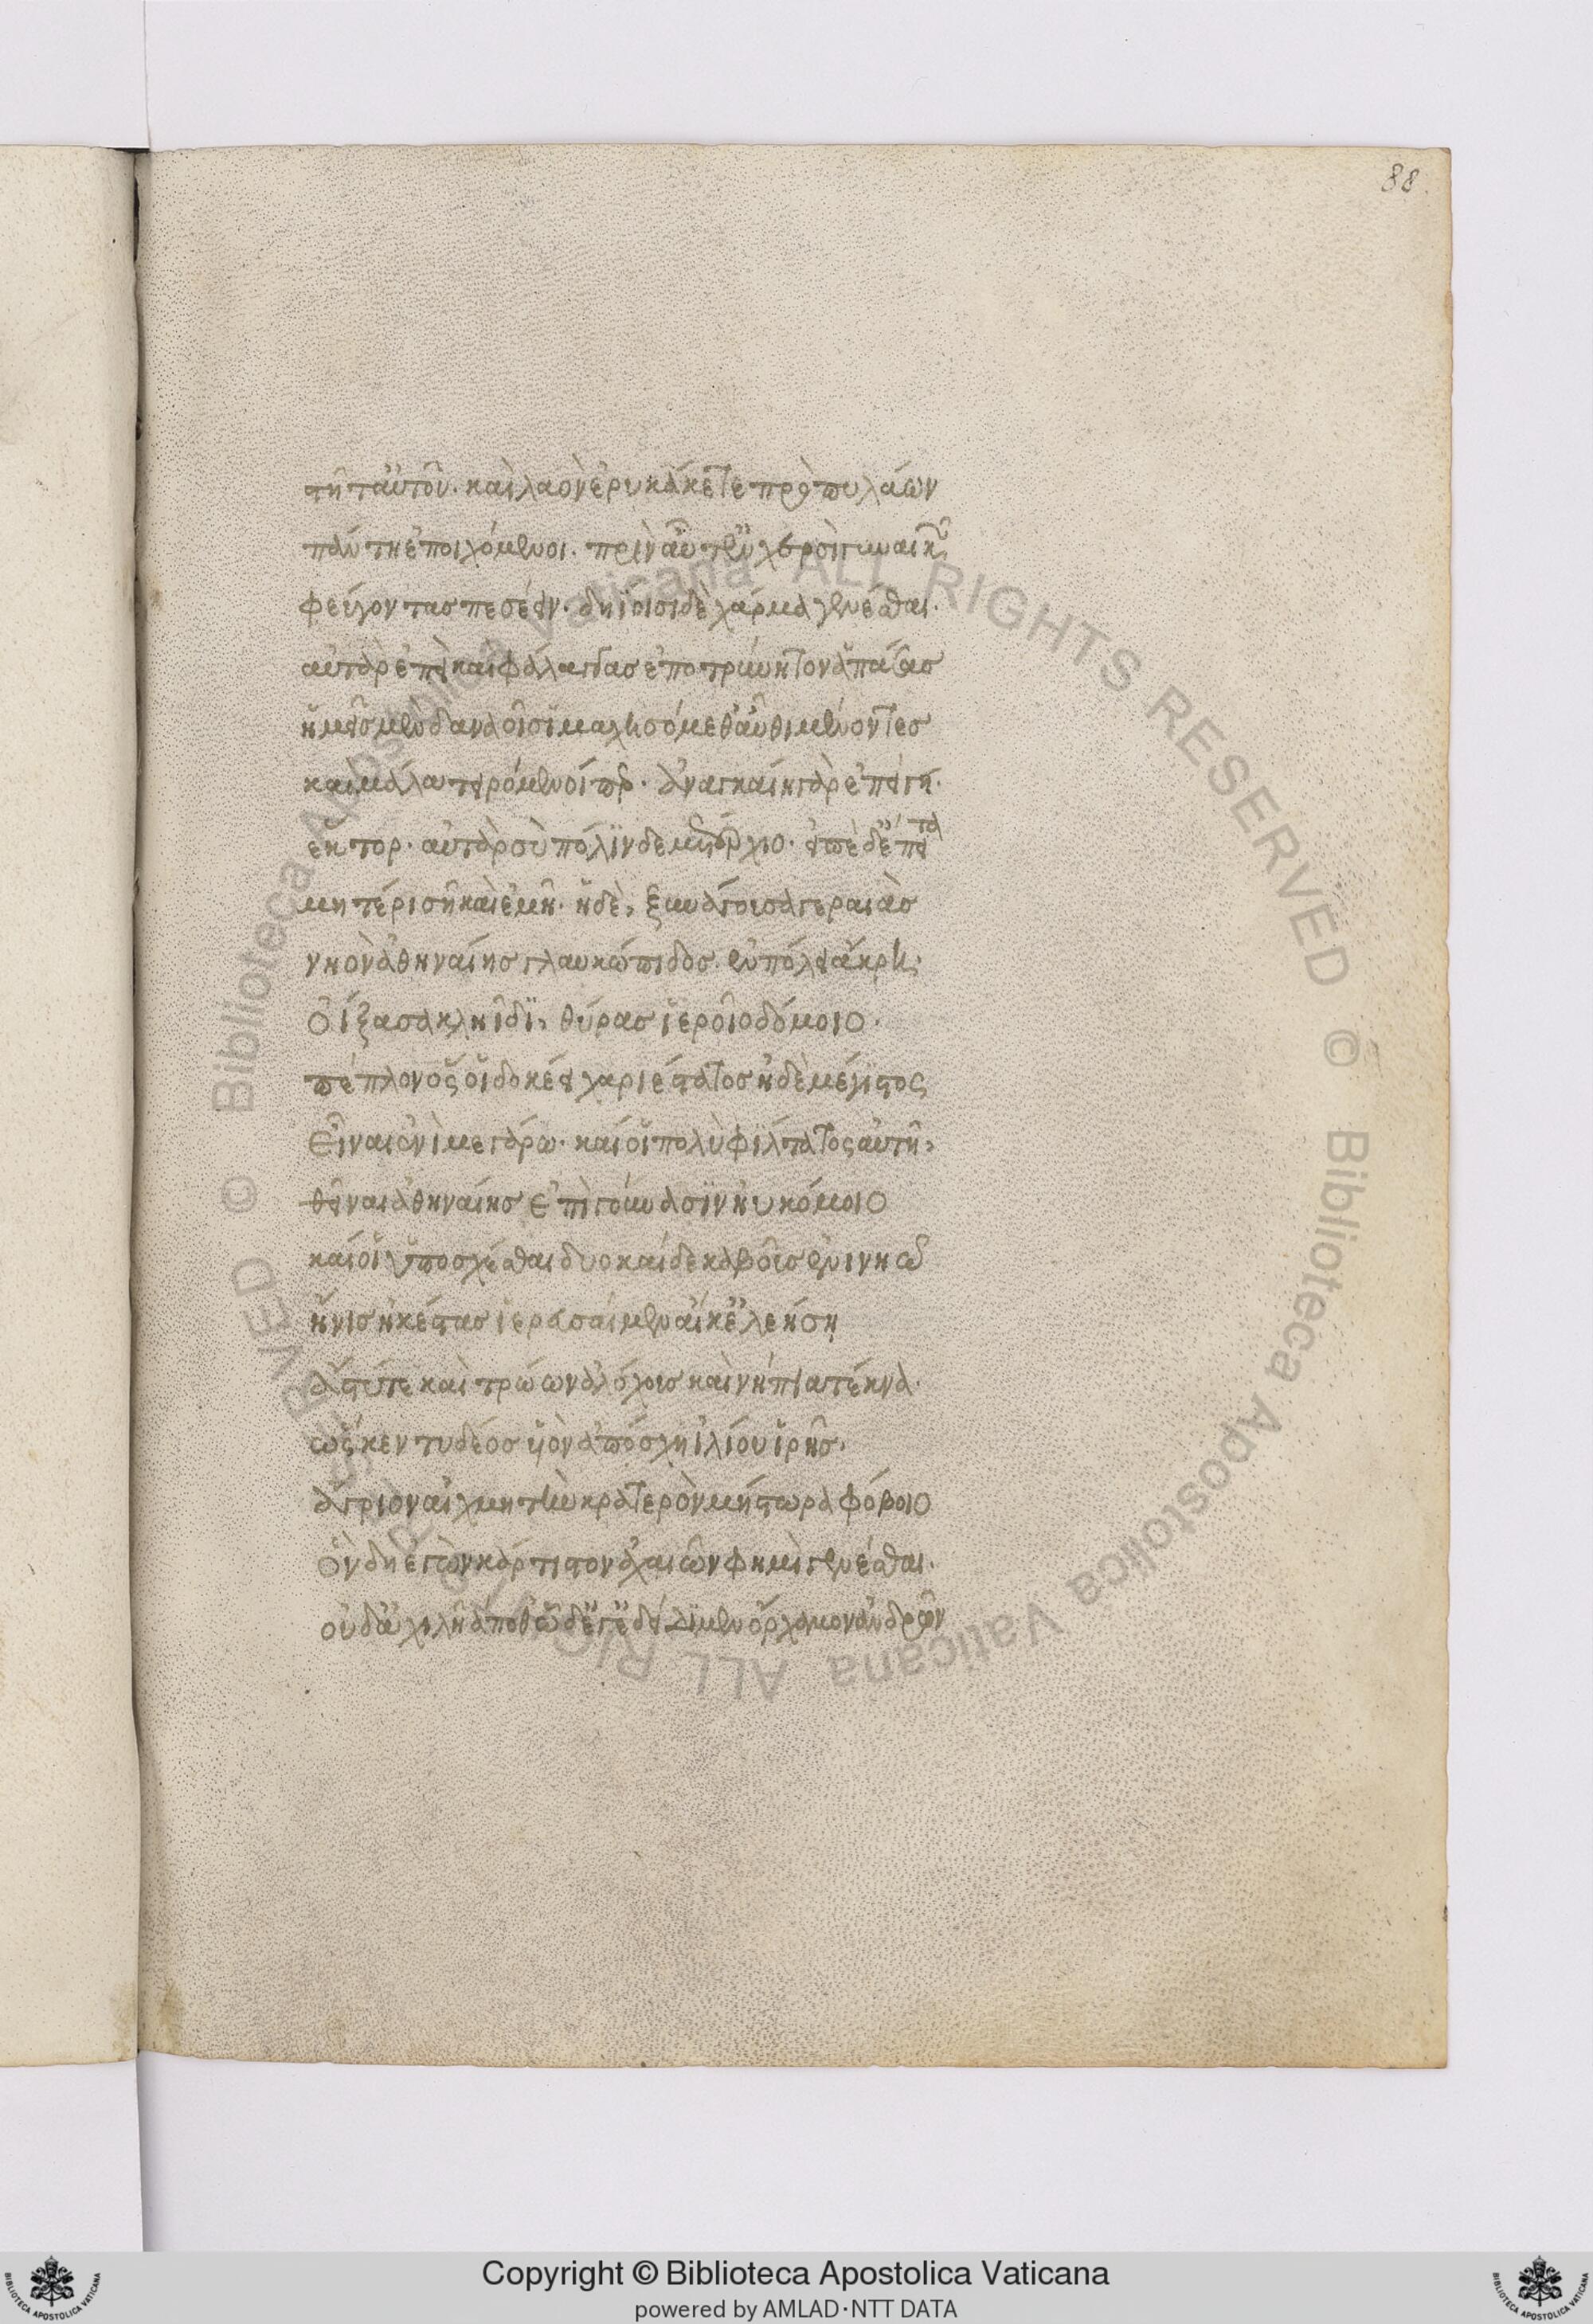 88.
στῆτ' αὐτοῦ. καὶ λαὸν ἐρυκάκετε πρὸ πυλάων
πάντη ἐποιχόμενοι. πρὶν αὖτ' ἐν χερσὶ γυναικῶν
φεύγοντας πεσέειν. δηΐοισι δὲ χάρμα γενέσθαι.
αὐτὰρ ἐπεὶ καὶ φάλαγγας ἐποτρύνητον ἁπάσας
ἡμεῖς μὲν δαναοῖσι μαχησόμεθ' αὖθι μένοντες
καὶ μάλα τειρόμενοί περ. ἀναγκαίη γὰρ ἐπείγει.
ἕκτορ. αὐτὰρ σὺ πόλινδε μετέρχεο. εἰπὲ δ' ἔπειτα
μητέρι σῇ καὶ ἐμῇ. ἡ δὲ, ξυνάγουσα γεραιὰς
νηὸν ἀθηναίης γλαυκώπιδος. ἐν πόλει ἄκρη,
οἴξασα κληῖδι, θύρας ἱεροῖο δόμοιο.
πέπλον ὅς οἱ δοκέει χαριέστατος ἠδὲ μέγιστος
εἶναι ἐνὶ μεγάρω. καί οἱ πολὺ φίλτατος αὐτῆ,
θεῖναι ἀθηναίης ἐπὶ γούνασιν ἠυκόμοιο
καί οἱ ὑποσχέσθαι δυοκαίδεκα βοῦς ἐνὶ νηῶ
ἤνις ἠκέστας ἱερευσέμεν αἴ κ' ἐλεήση
ἄστυ τε καὶ τρώων ἀλόχους καὶ νήπια τέκνα.
ὥς κεν τυδέος υἱὸν ἀπόσχη ἰλίου ἱρῆς.
ἄγριον αἰχμητὴν κρατερὸν μήστωρα φόβοιο
ὃν δὴ ἐγὼν κάρτιστον ἀχαιῶν φημὶ γενέσθαι.
οὐδ' ἀχιλῆά ποθ' ὧδέ γ' ἐδείδιμεν ὄρχαμον ἀνδρῶν
© Biblioteca Apostolica Vaticana ALL RIGHTS RESERVED © Biblioteca Apostolica Vaticana ALL RIGHTS RESERVED
Copyright © Biblioteca Apostolica Vaticana
powered by AMLAD·NTT DATA
BIBLIOTECA APOSTOLICA VATICANA
BIBLIOTECA APOSTOLICA VATICANA